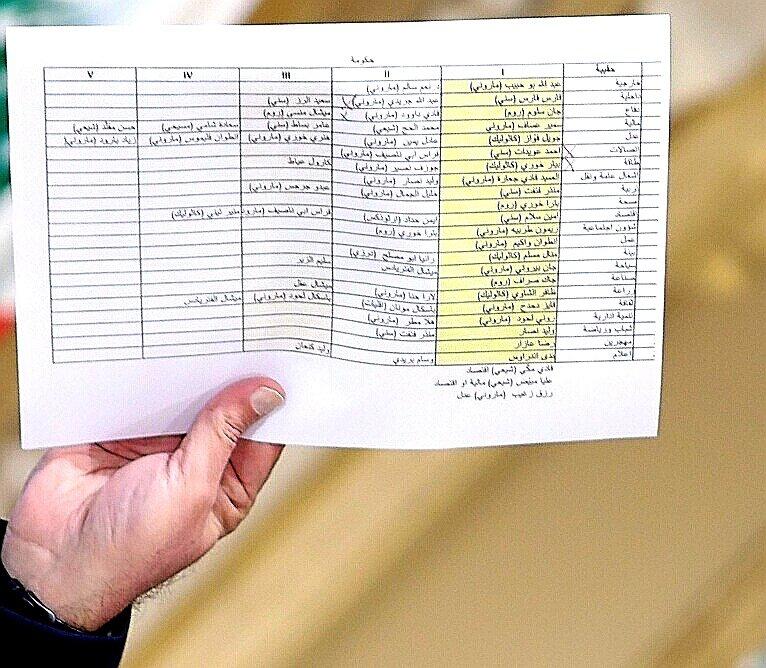 حكومة
حقيبة I II III IV V
خارجية عبد الله بو حبيب (ماروني) د. نعم سالم (ماروني)
داخلية فارس فارس (سني) عبد الله جريدي (ماروني) سعيد الرز (سني)
دفاع جان سلوم (روم) فادي داوود (ماروني) ميشال منسى (روم)
مالية سمير عساف (ماروني) محمد الحج (شيعي) عامر بساط (سني) سعادة شامي (مسيحي) حسن مقلد (شيعي)
عدل جويل فؤاز (كاثوليك) عادل يمين (ماروني) هنري خوري (ماروني) انطوان قليموس (ماروني) زياد بارود (ماروني)
اتصالات احمد عويدات (سني) فراس ابي ناصيف (ماروني)
طاقة بيار خوري (كاثوليك) جوزف نصير (ماروني) كارول عياط
اشغال عامة ونقل السيد فادي جعارة (ماروني) وليد نصار (ماروني)
تربية منذر فتفت (سني) خليل الجمال (ماروني) عبدو جرجس (ماروني)
صحة يارا خوري (روم)
اقتصاد امين سلام (سني) ايمن حداد (ارثوذكس) فراس ابي ناصيف منير ليفي (كاثوليك)
شؤون اجتماعية ريمون طربيه (ماروني) بترا خوري (روم)
عمل انطوان واكيم (ماروني)
بيئة منال مسلم (كاثوليك) رانيا ابو مصلح (درزي) سليم الزير
سياحة جان بيروتي (ماروني) ميشال الفتريادس
صناعة جاك صراف (روم)
زراعة ظافر الشاوي (كاثوليك) لارا حنا (ماروني) ميشال عقل
ثقافة فايز دحدح (ماروني) باسكال مونان (اقليات) باسكال لحود (ماروني) ميشال الفتريادس
تنمية ادارية روني لحود (ماروني) هلا مطر (ماروني)
شباب ورياضة وليد نصار منذر فتفت (سني)
مهجرين رضا عازار وليد كنعان
اعلام ندى اندراوس وسام بريدي
فادي مكي (شيعي) اقتصاد
عليا مبيض (شيعي) مالية او اقتصاد
رزق زغيب (ماروني) عدل